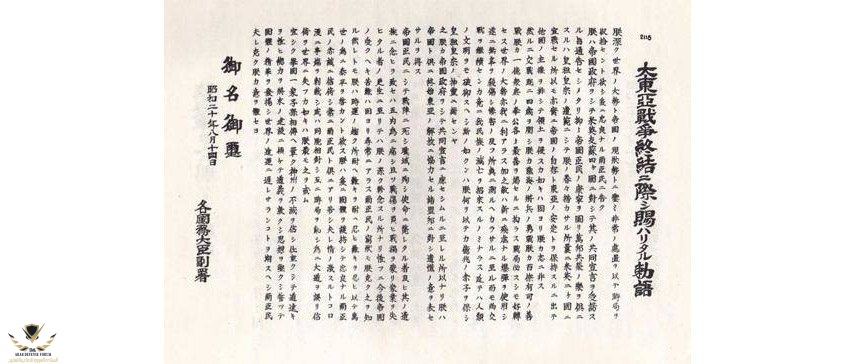 大東亞戰爭終結ニ際シ賜ハリタル勅語
朕深ク世界ノ大勢ト帝國ノ現狀トニ鑑ミ非常ノ措置ヲ以テ時局ヲ
收拾セムト欲シ茲ニ忠良ナル爾臣民ニ告ク
朕ハ帝國政府ヲシテ米英支蘇四國ニ對シ其ノ共同宣言ヲ受諾ス
ル旨通告セシメタリ抑〻帝國臣民ノ康寧ヲ圖リ萬邦共榮ノ樂ヲ偕ニ
スルハ皇祖皇宗ノ遺範ニシテ朕ノ拳々措カサル所曩ニ米英二國ニ
宣戰セル所以モ亦實ニ帝國ノ自存ト東亞ノ安定トヲ庶幾スルニ出テ
他國ノ主權ヲ排シ領土ヲ侵スカ如キハ固ヨリ朕カ志ニアラス
然ルニ交戰已ニ四歲ヲ閱シ朕カ陸海將兵ノ勇戰朕カ百僚有司ノ勵精
朕カ一億衆庶ノ奉公各〻最善ヲ盡セルニ拘ラス戰局必スシモ好轉
セス世界ノ大勢亦我ニ利アラス加之敵ハ新ニ殘虐ナル爆彈ヲ使用シテ
頻ニ無辜ヲ殺傷シ慘害ノ及フ所眞ニ測ルヘカラサルニ至ル而モ尚交
戰ヲ繼續セムカ終ニ我カ民族ノ滅亡ヲ招來スルノミナラス延テ人類
ノ文明ヲモ破却スヘシ斯ノ如クムハ朕何ヲ以テカ億兆ノ赤子ヲ保シ
皇祖皇宗ノ神靈ニ謝セムヤ
是レ朕カ帝國政府ヲシテ共同宣言ニ應セシムルニ至レル所以ナリ朕ハ
帝國ト共ニ終始東亞ノ解放ニ協力セル諸盟邦ニ對シ遺憾ノ意ヲ表セ
サルヲ得ス
帝國臣民ニシテ戰陣ニ死シ職域ニ殉シ非命ニ斃レタル者及其ノ遺
族ニ想ヲ致セハ五內爲ニ裂ク且戰傷ヲ負ヒ災禍ヲ蒙リ家業ヲ失
ヒタル者ノ厚生ニ至リテハ朕ノ深ク軫念スル所ナリ惟フニ今後帝國
ノ受クヘキ苦難ハ固ヨリ尋常ニアラス爾臣民ノ衷情モ朕善ク之ヲ知
ル然レトモ朕ハ時運ノ趨ク所堪ヘ難キヲ堪ヘ忍ヒ難キヲ忍ヒ以テ萬
世ノ爲ニ太平ヲ開カムト欲ス朕ハ茲ニ國體ヲ護持シ得テ忠良ナル爾臣
民ノ赤誠ニ信倚シ常ニ爾臣民ト共ニ在リ若シ夫レ情ノ激スル所
濫ニ事端ヲ滋クシ或ハ同胞排擠互ニ時局ヲ亂リ爲ニ大道ヲ誤リ信
義ヲ世界ニ失フカ如キハ朕最モ之ヲ戒ム
宜シク擧國一家子孫相傳ヘ確ク神州ノ不滅ヲ信シ任重クシテ道遠キ
ヲ念ヒ總力ヲ將來ノ建設ニ傾ケ道義ヲ篤クシ志操ヲ鞏クシ誓テ
國體ノ精華ヲ發揚シ世界ノ進運ニ後レサラムコトヲ期スヘシ爾臣民
其レ克ク朕カ意ヲ體セヨ
御名御璽
昭和二十年八月十四日
各國務大臣副署
ARAB DEFENSE FORUM